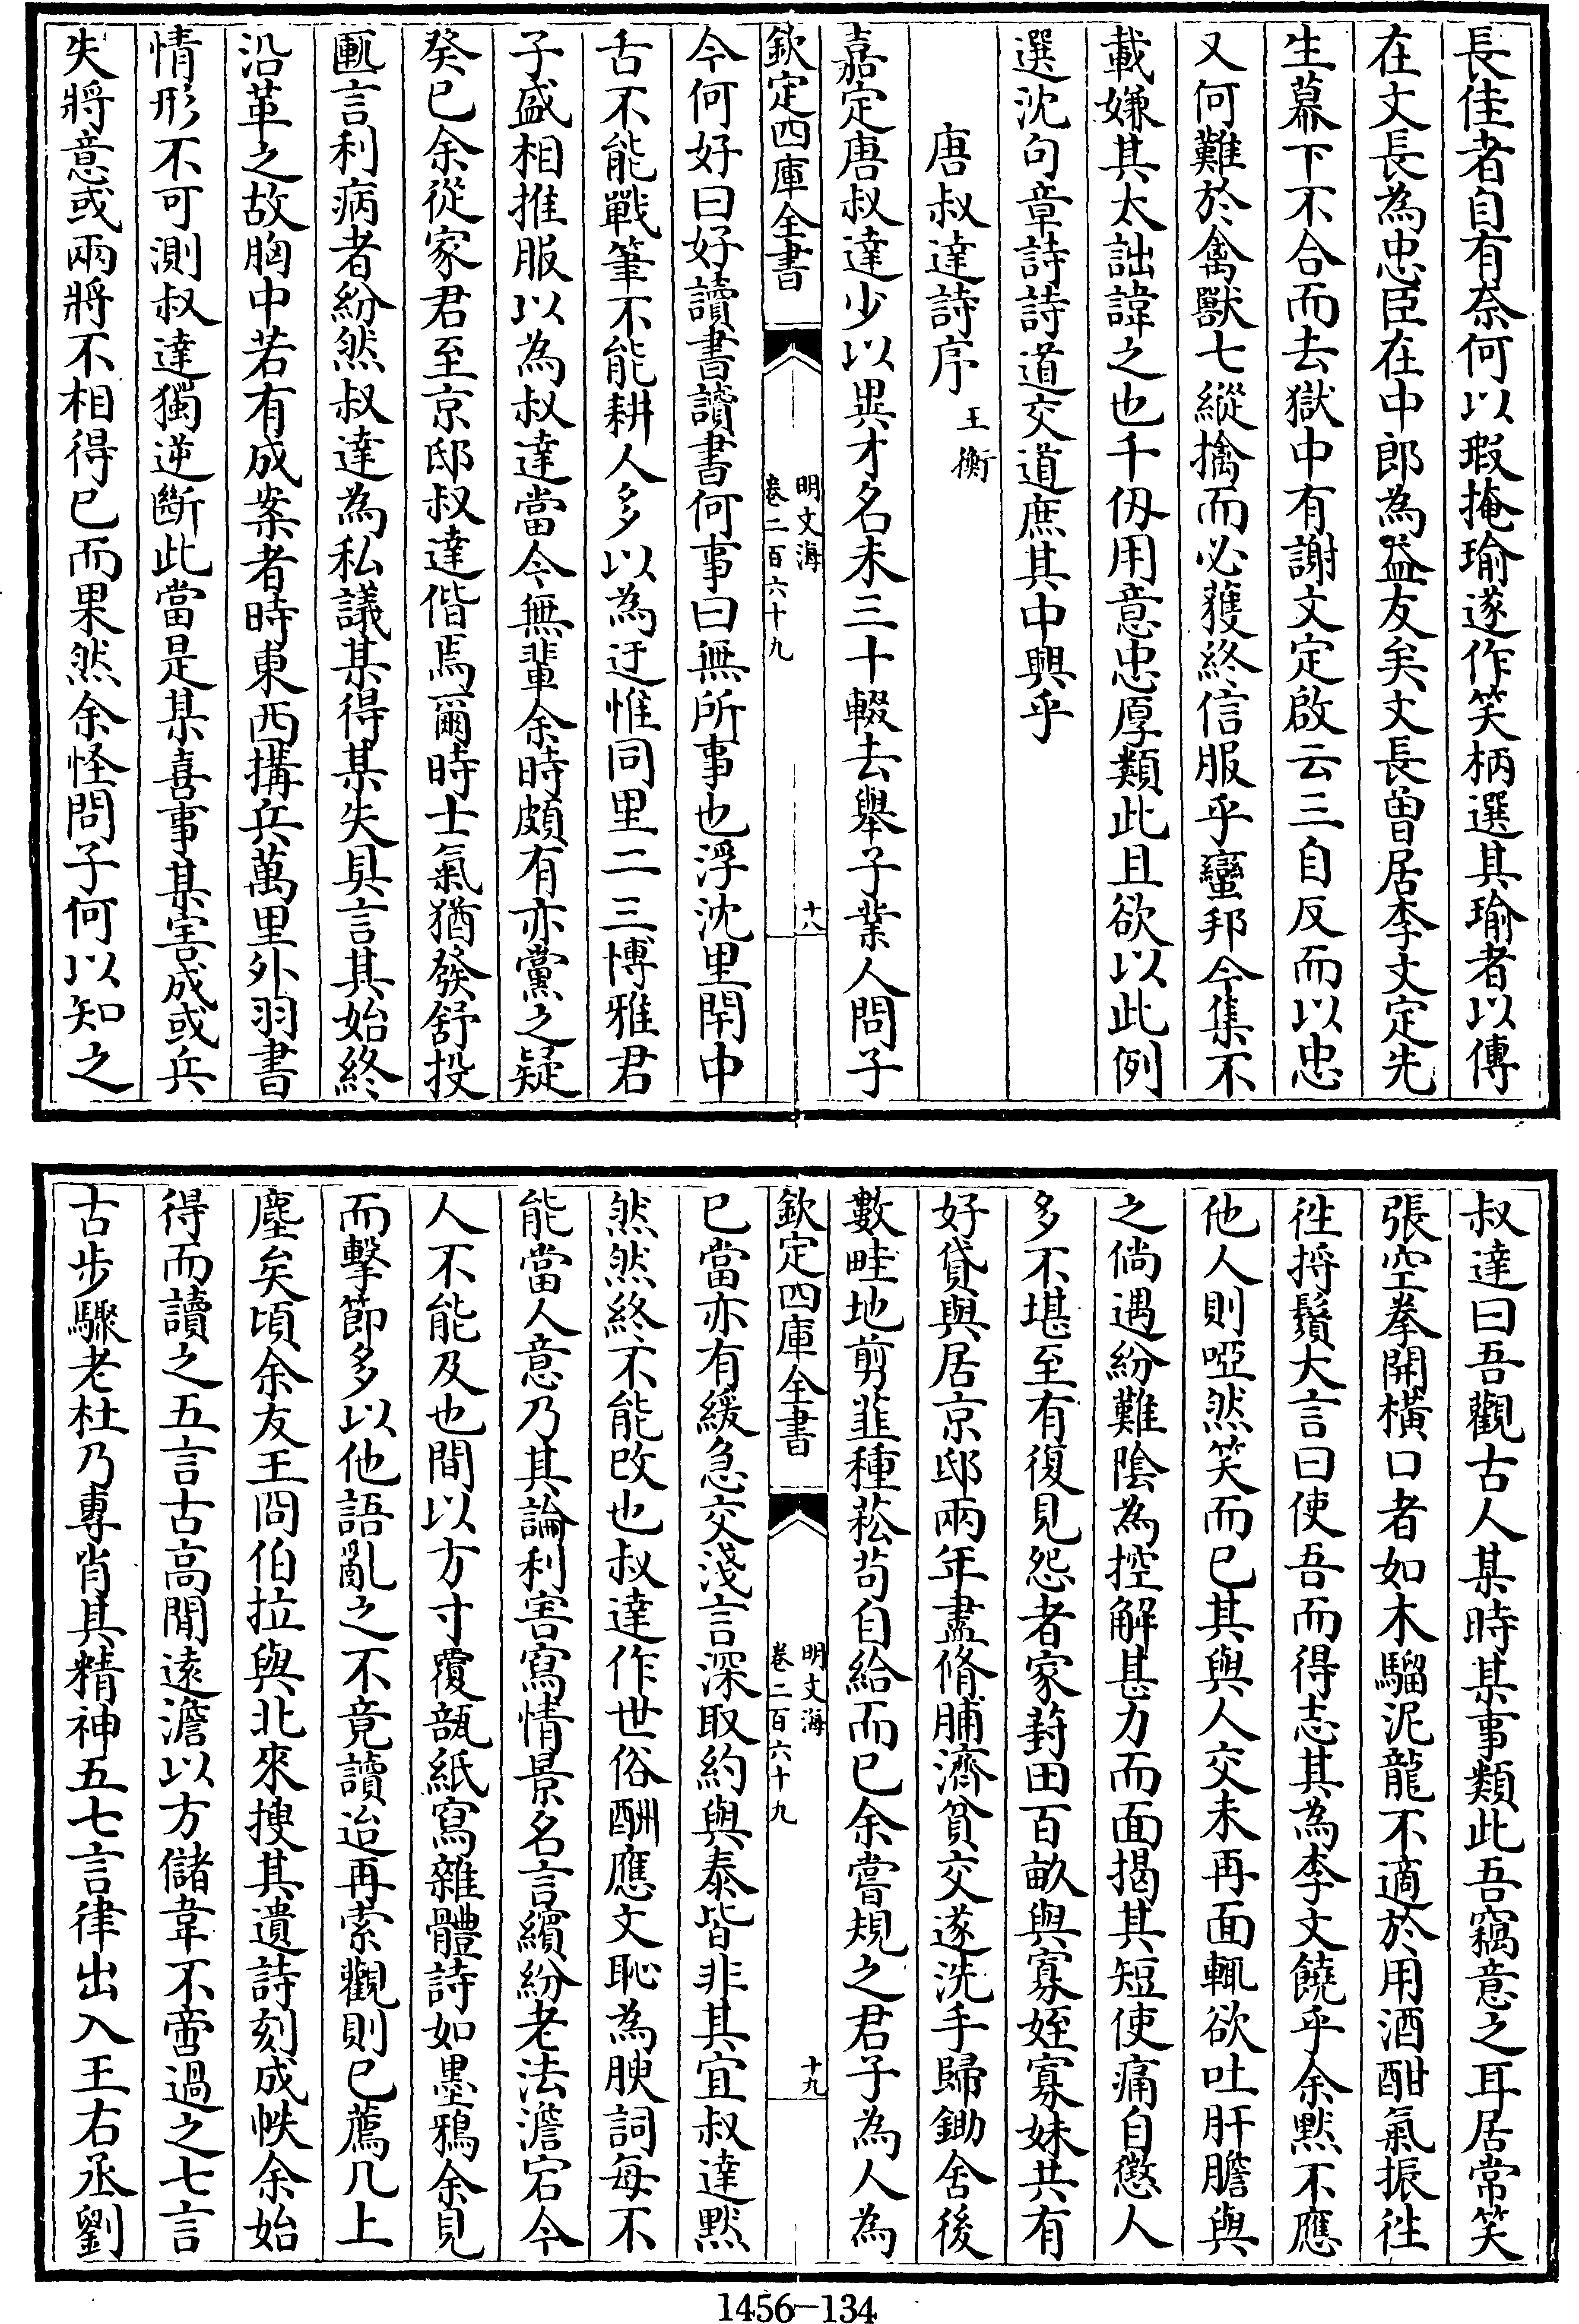 長佳者自有奈何以瑕掩瑜遂作笑柄選其瑜者以傳
在文長為忠臣在中郎為益友矣文長曾居李文定先
生幕下不合而去獄中有謝文定啟云三自反而以忠
又何難於禽獸七縱擒而必獲終信服乎蠻邦今集不
載嫌其太詘諱之也千仭用意忠厚類此且欲以此例
選沈句章詩詩道交道庶其中興乎
唐叔達詩序 王衡
嘉定唐叔達少以異才名未三十輟去舉子業人問子
欽定四庫全書 明文海 卷二百六十九 十八
今何好曰好讀書讀書何事曰無所事也浮沈里閈中
舌不能戰筆不能耕人多以為迂惟同里二三博雅君
子盛相推服以為叔達當今無輩余時頗有亦黨之疑
癸巳余從家君至京邸叔達偕焉爾時士氣猶發舒投
匭言利病者紛然叔達為私議某得某失具言其始終
沿革之故胸中若有成案者時東西搆兵萬里外羽書
情形不可測叔達獨逆斷此當是某喜事某害成或兵
失將意或兩將不相得已而果然余怪問子何以知之
叔達曰吾觀古人某時某事類此吾竊意之耳居常笑
張空拳開橫口者如木騮泥龍不適於用酒酣氣振徃
徃捋鬚大言曰使吾而得志其為李文饒乎余黙不應
他人則啞然笑而已其與人交未再面輒欲吐肝膽與
之倘遇紛難陰為控解甚力而面揭其短使痛自懲人
多不堪至有復見怨者家葑田百畝與寡姪寡妹共有
好貸與居京邸兩年盡脩脯濟貧交遂洗手歸鋤舍後
數畦地剪韮種菘茍自給而已余嘗規之君子為人為
欽定四庫全書 明文海 卷二百六十九 十九
已當亦有緩急交淺言深取約與泰皆非其宜叔達黙
然然終不能改也叔達作世俗酬應文恥為腴詞每不
能當人意乃其論利害寫情景名言繽紛老法澹宕今
人不能及也間以方寸覆瓿紙寫雜體詩如墨鴉余見
而擊節多以他語亂之不竟讀迨再索觀則已薦几上
塵矣頃余友王冏伯拉與北來搜其遺詩刻成帙余始
得而讀之五言古高閒遠澹以方儲韋不啻過之七言
古步驟老杜乃專肖其精神五七言律出入王右丞劉
1456-134